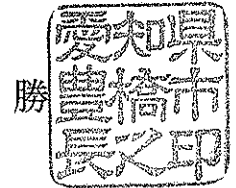 勝
愛知県
豊橋市
長之印